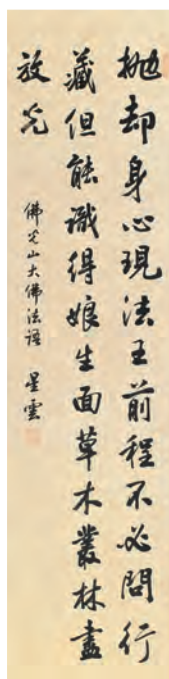 拋却身心現法王前程不必問行
藏但能識得娘生面草木叢林盡
放光
佛光山大佛法語 星雲